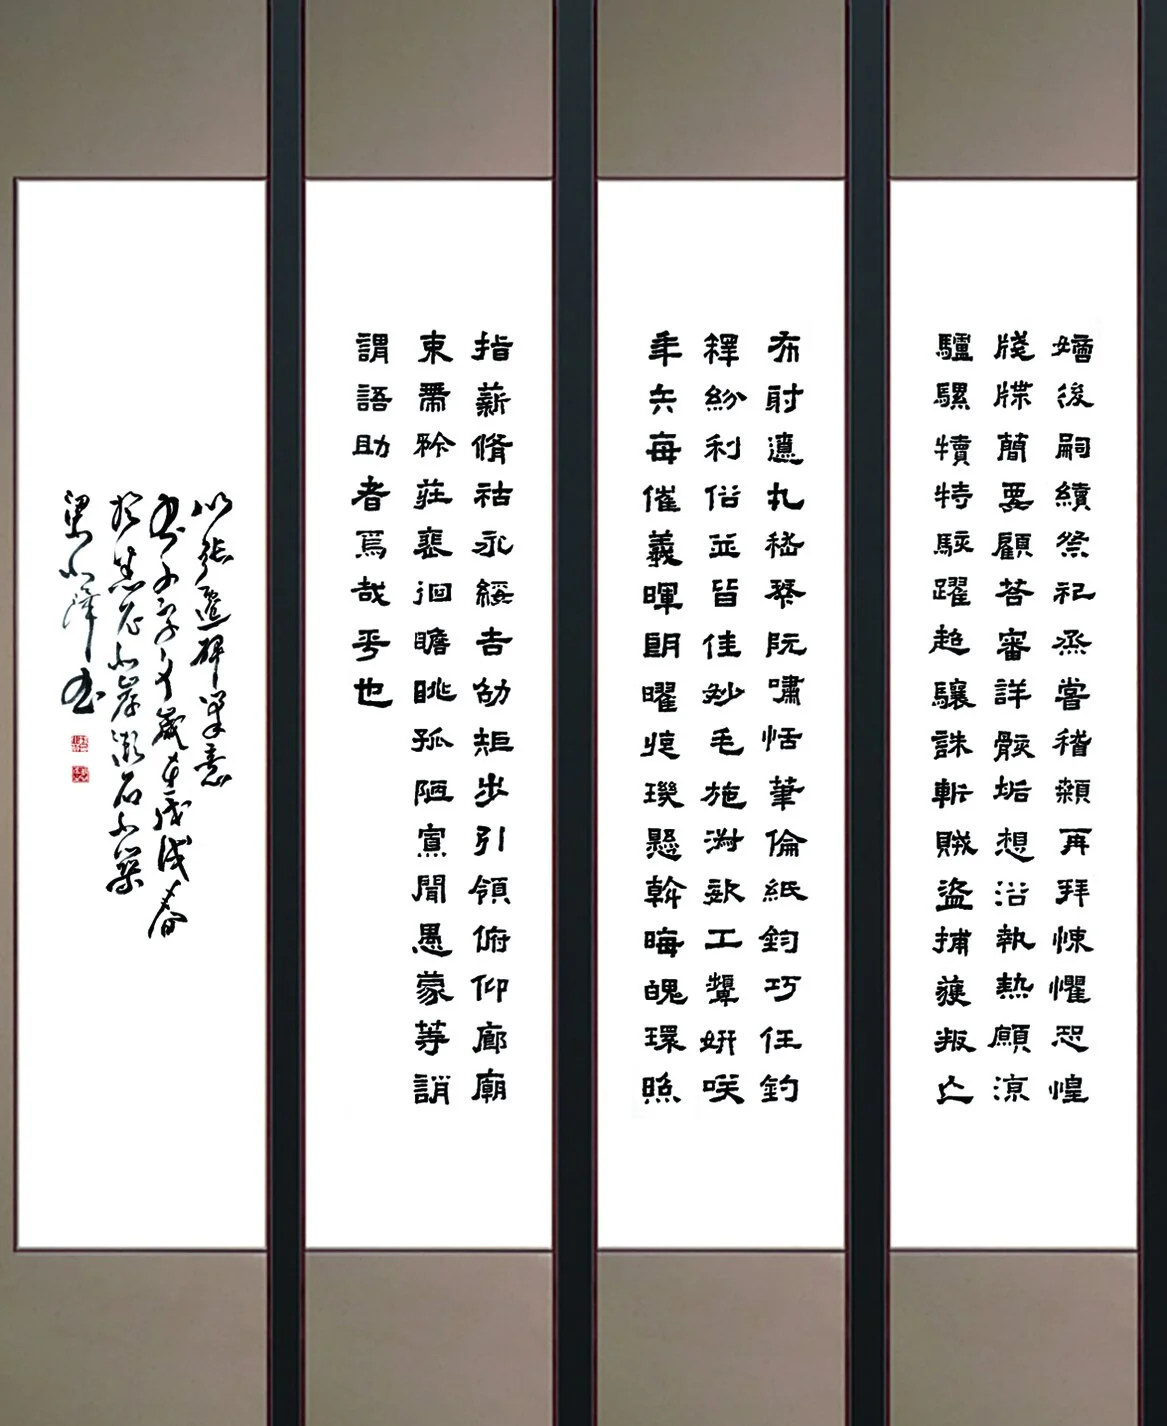 嫡後嗣續祭祀烝嘗稽顙再拜悚懼恐惶
牋牒簡要顧荅審詳骸垢想浴執熱願凉
驢騾犢特駭躍超驤誅斬賊盗捕獲叛亡
布射遼丸嵇琴阮嘯恬筆倫紙鈞巧任釣
釋紛利俗並皆佳妙毛施淑姿工顰妍咲
年矢每催羲暉朗曜旋璣懸斡晦魄環照
指薪脩祜永綏吉劭矩步引領俯仰廊廟
束帶矜莊裴徊瞻眺孤陋寡聞愚蒙等誚
謂語助者焉哉乎也
以張遷碑筆意
書千字文歲在戊戌春
於岸漱石小築
梁小澤书